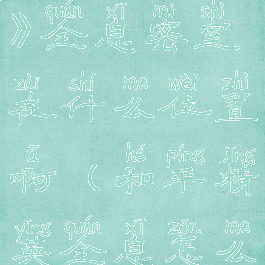 》quán xī mì shì
全息密室
zài shí me wèi zhì
在什么位置
ā hé píng jīng
啊（和平精
yīng quán xī zěn me
英全息怎么